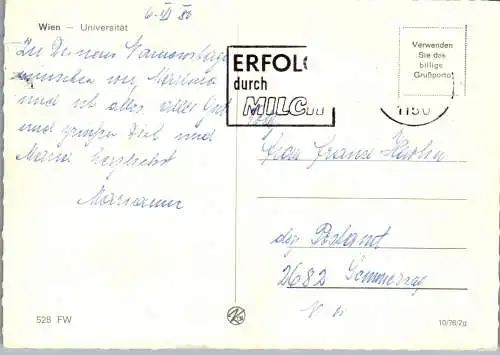 6. VI 80
Wien – Universität
Zu Deinem Namenstage
wünschen wir,
und ich alles, alles Gute
und grüßen Dich und
Mama herzlichst
Marianne
ERFOLG
durch
MILCH
1150
Verwenden
Sie das
billige
Grußporto
Frau Franz
2682
N. Ö.
528 FW
10/76/2g